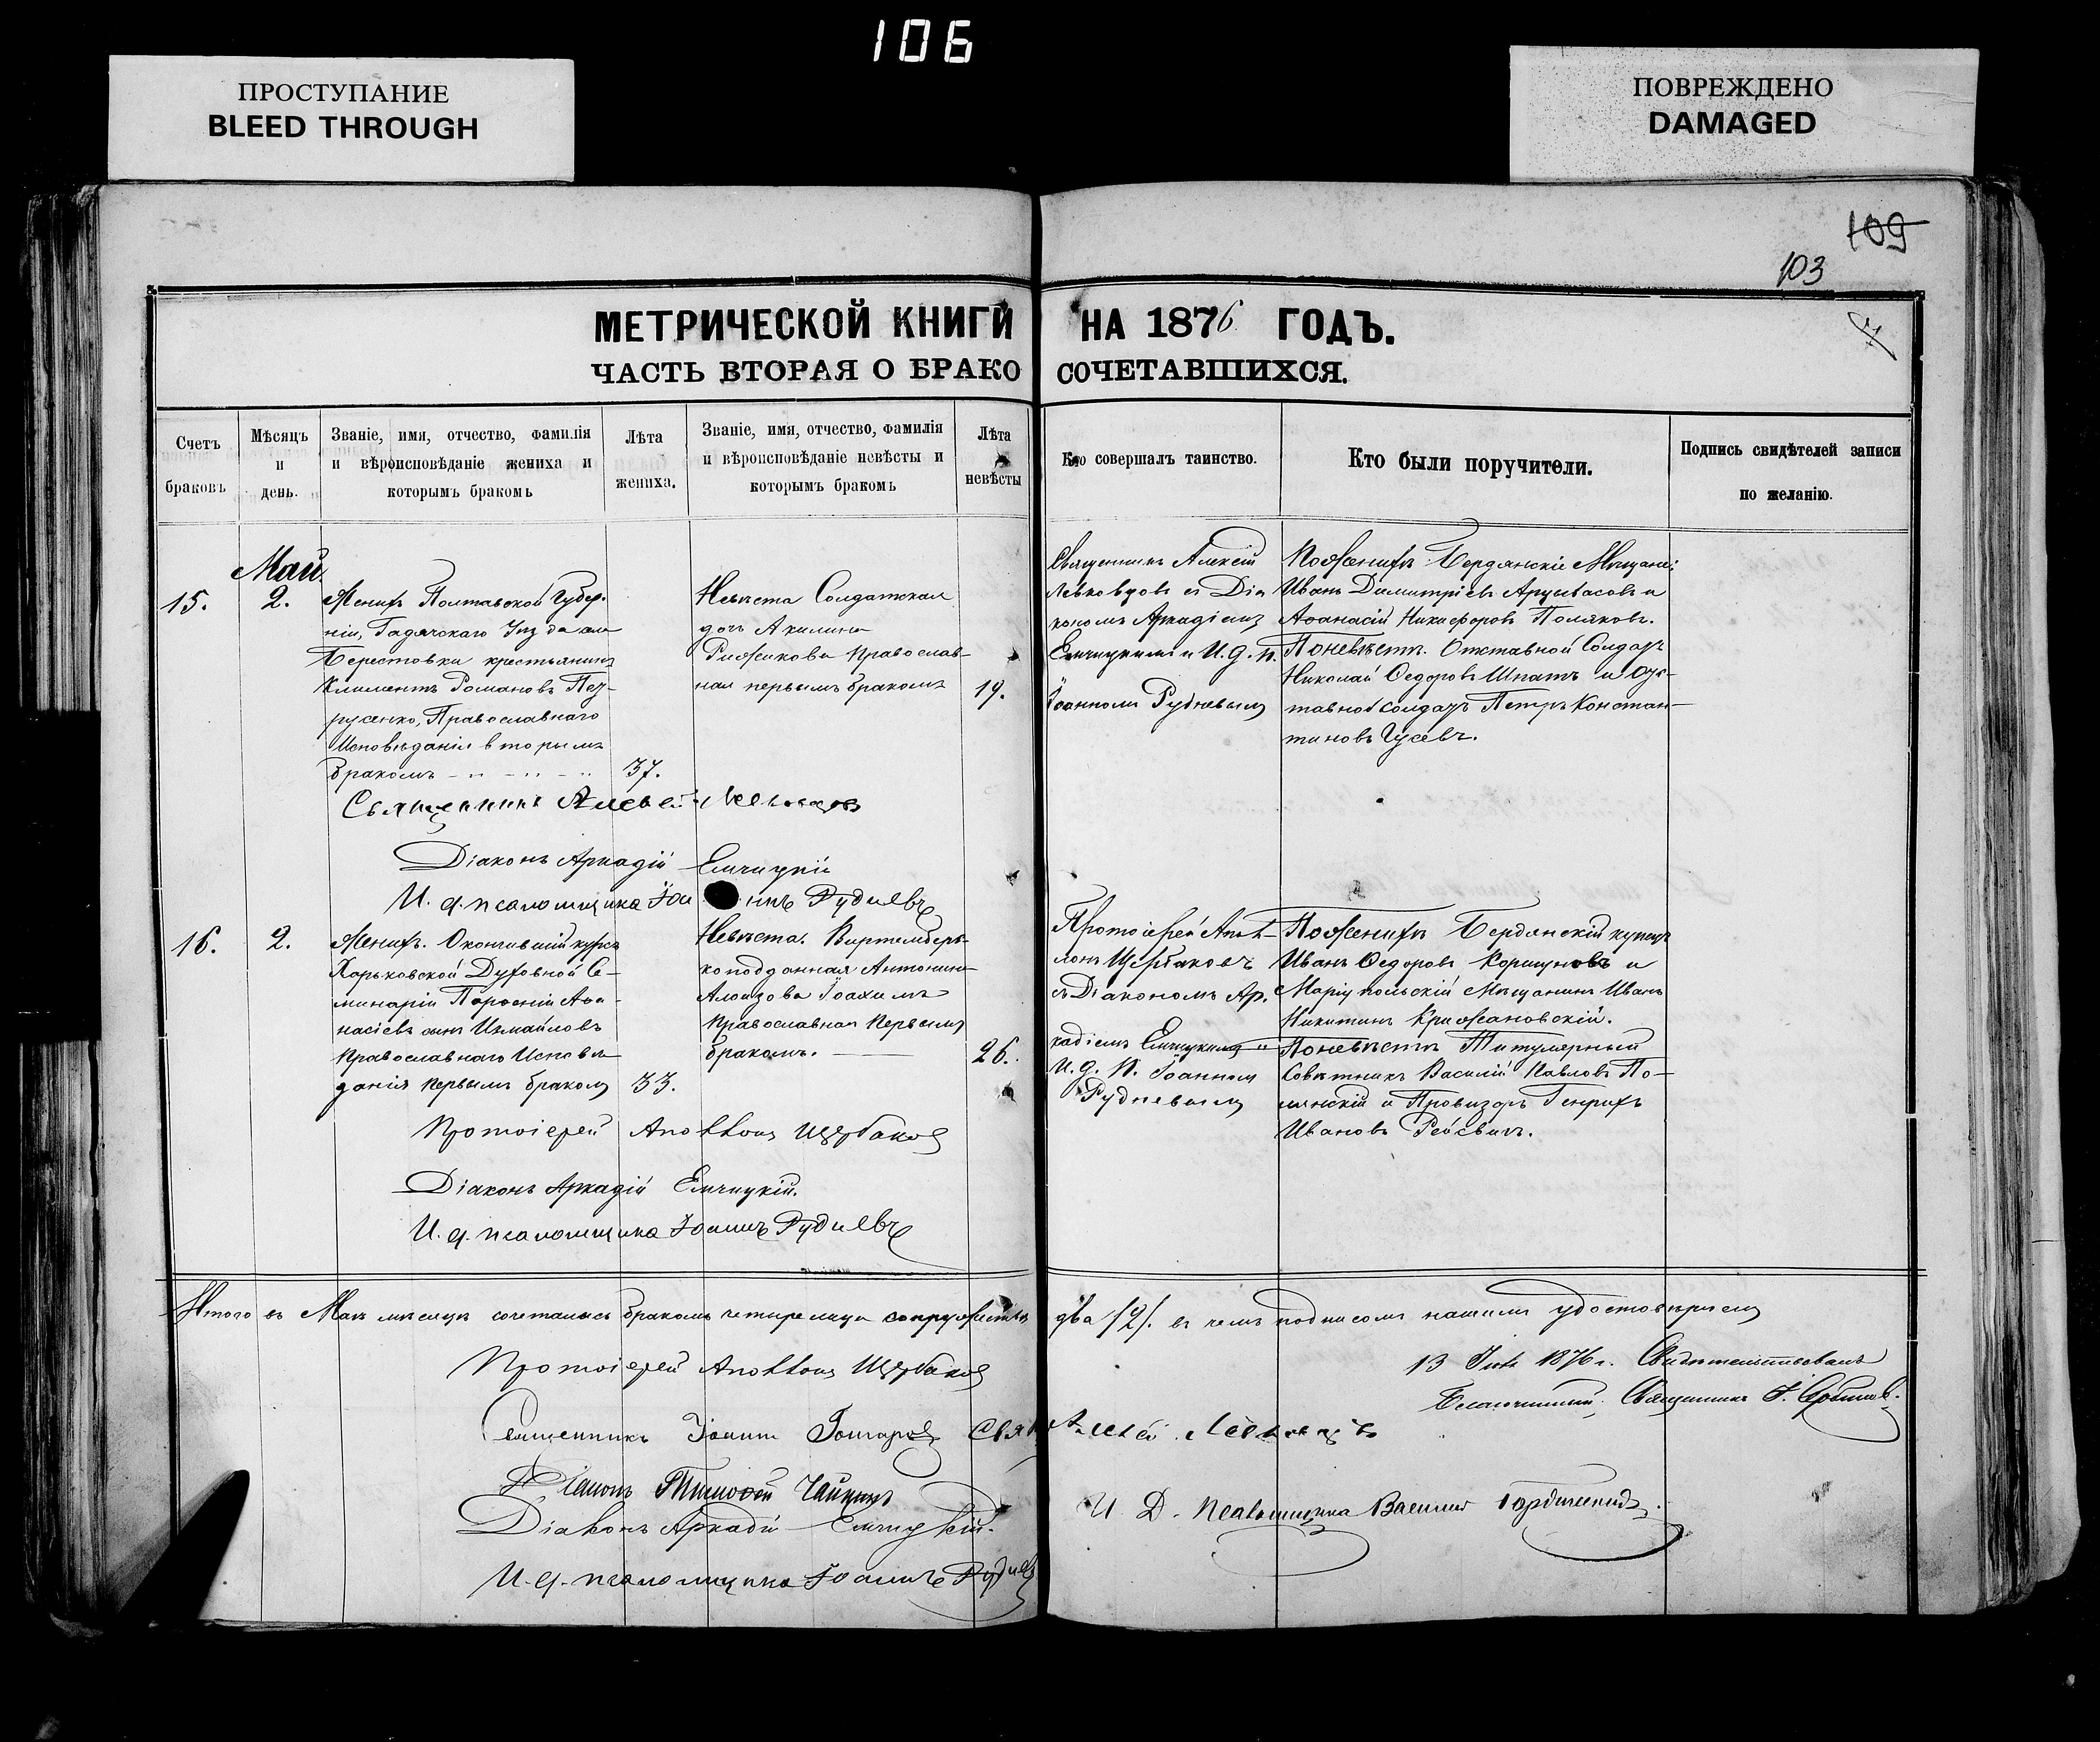 106
ПРОСТУПАНИЕ
BLEED THROUGH
ПОВРЕЖДЕНО
DAMAGED
109
103
МЕТРИЧЕСКОЙ КНИГИ НА 1876 ГОДЪ.
ЧАСТЬ ВТОРАЯ О БРАКОСОЧЕТАВШИХСЯ.
Счетъ браковъ
Мѣсяцъ и день.
Званіе, имя, отчество, фамилія
и вѣроисповѣданіе жениха и
которымъ бракомъ
Лѣта
жениха.
Званіе, имя, отчество, фамилія
и вѣроисповѣданіе невѣсты и
которымъ бракомъ
Лѣта
невѣсты
Кто совершалъ таинство.
Кто были поручители.
Подпись свидѣтелей записи
по желанію.
Май
15.
2.
Женихъ Полтавской Губер-
ніи, Гадячскаго Уѣзда
Берестовки крестьянинъ
Климентъ Романовъ Пет-
русенко, Православнаго
Исповѣданія вторымъ
бракомъ
37.
Невѣста Солдатская
дочь Акилина
Рижикова Православ-
ная первымъ бракомъ
19.
Священникъ Алексій
Левковцовъ съ Діа
кономъ Аркадіемъ
Емчицкимъ и И. д. п.
Іоанномъ Рудневымъ
По женихѣ Бердянскіе Мѣщане:
Иванъ Димитріевъ и
Аѳанасій Никифоровъ Поляковъ.
По невѣстѣ. Отставной Солдатъ
Николай Ѳедоровъ Шпатъ и От-
тавной солдатъ Петръ Констан-
тиновъ Гусевъ.
Священникъ Алексей Левковцовъ
Діаконъ Аркадій Емчицкій
И. д. псаломщика Іоаннъ Рудневъ
16.
2.
Женихъ. Окончившій курсъ
Харьковской Духовной Се-
минаріи Парѳеній Аѳа-
насіевъ сынъ Измайловъ
Православнаго Исповѣ-
данія первымъ бракомъ
33.
Невѣста. Виртемберг-
коподданная Антонина
Алоизова Іоахимъ
Православная Первымъ
бракомъ.
26.
Протоіерей Апол-
лонъ Щербаковъ
съ Діакономъ Ар.
кадіемъ Емчицкимъ и
И. д. п. Іоанномъ
Рудневымъ
По женихѣ Бердянскій купецъ
Иванъ Ѳедоровъ Коршуновъ и
Маріупольскій Мѣщанинъ Иванъ
Никитинъ Крижановскій.
По невѣстѣ Титулярный
Совѣтникъ Василій Павловъ По-
лянскій и Провизоръ Генрихъ
Ивановъ
Протоіерей Аполлонъ Щербаковъ
Діаконъ Аркадій Емчицкій.
И. д. псаломщика Іоаннъ Рудневъ
Итого въ Маѣ мѣсяцѣ сочеталось бракомъ четыре лица супружествъ два /2/. въ чемъ подписомъ нашимъ удостовѣряемъ
Протоіерей Аполлонъ Щербаковъ
13 1876 г. Свидѣтельствовалъ
Благочинный, Священникъ І.
Священникъ Іоаннъ Гончаровъ
Алексей Левковцовъ
Діаконъ Тимоѳей Чайкинъ
Діаконъ Аркадій Емчицкій.
И. Д. Псаломщика Василій
И. д. псаломщика Іоаннъ Рудневъ